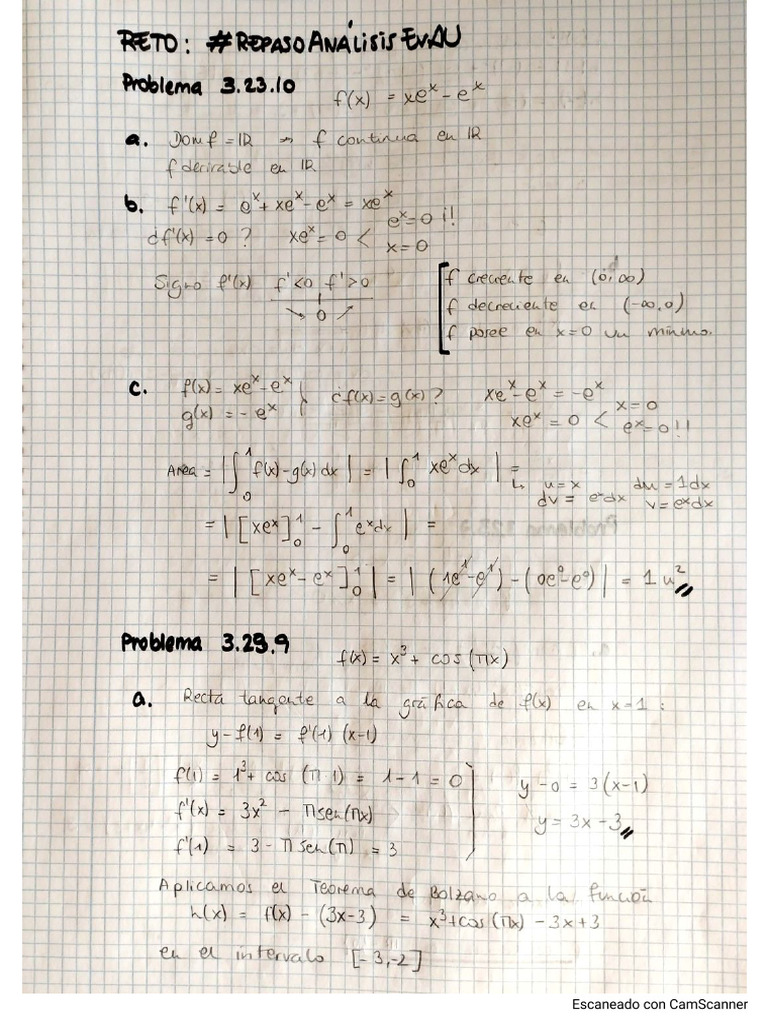 RETO: #REPASOANÁLISIS EvAU
Problema 3.23.10
f(x) = xeˣ - eˣ
a. Dom f = IR → f continua en IR
f derivable en IR
b. f'(x) = eˣ + xeˣ - eˣ = xeˣ
¿f'(x) = 0 ? xeˣ = 0 < eˣ = 0 ¡!
x = 0
Signo f'(x) f'<0 f'>0
↘ 0 ↗
f creciente en (0, ∞)
f decreciente en (-∞, 0)
f posee en x=0 un mínimo.
c. f(x) = xeˣ - eˣ
g(x) = - eˣ
¿f(x) = g(x) ?
xeˣ - eˣ = -eˣ
xeˣ = 0 < x = 0
eˣ = 0 !!
Area = | ∫₀¹ f(x) - g(x) dx | = | ∫₀¹ xeˣ dx | =
↳ u = x du = 1dx
dv = eˣdx v = eˣdx
= | [xeˣ]₀¹ - ∫₀¹ eˣdx | =
= | [xeˣ - eˣ]₀¹ | = | (1e¹ - e¹) - (0e⁰ - e⁰) | = 1 u²
Problema 3.29.9
f(x) = x³ + cos (πx)
a. Recta tangente a la gráfica de f(x) en x=1 :
y - f(1) = f'(1) (x-1)
f(1) = 1³ + cos (π·1) = 1 - 1 = 0
f'(x) = 3x² - π sen(πx)
f'(1) = 3 - π sen(π) = 3
y - 0 = 3(x-1)
y = 3x - 3
Aplicamos el Teorema de Bolzano a la función
h(x) = f(x) - (3x-3) = x³ + cos (πx) - 3x + 3
en el intervalo [-3,-2]
Escaneado con CamScanner